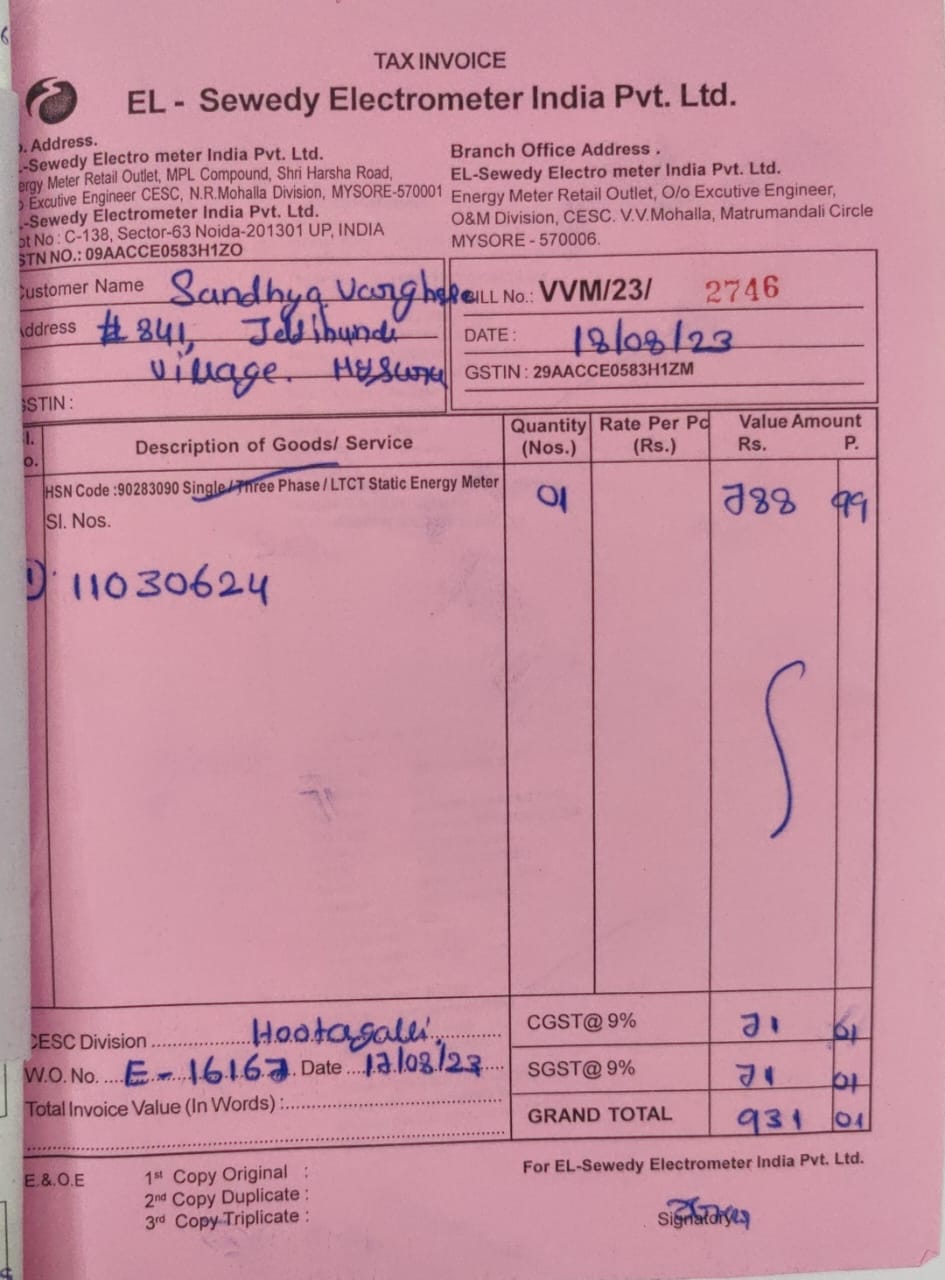 TAX INVOICE
EL - Sewedy Electrometer India Pvt. Ltd.
. Address.
-Sewedy Electro meter India Pvt. Ltd.
ergy Meter Retail Outlet, MPL Compound, Shri Harsha Road,
Excutive Engineer CESC, N.R.Mohalla Division, MYSORE-570001
-Sewedy Electrometer India Pvt. Ltd.
ot No : C-138, Sector-63 Noida-201301 UP, INDIA
STN NO.: 09AACCE0583H1ZO
Branch Office Address .
EL-Sewedy Electro meter India Pvt. Ltd.
Energy Meter Retail Outlet, O/o Excutive Engineer,
O&M Division, CESC. V.V.Mohalla, Matrumandali Circle
MYSORE - 570006.
Customer Name Sandhya Varghese
Address # 841,
Village. Mysuru
GSTIN :
BILL No.: VVM/23/ 2746
DATE : 18/08/23
GSTIN : 29AACCE0583H1ZM
Description of Goods/ Service Quantity (Nos.) Rate Per Pc (Rs.) Value Amount Rs. P.
HSN Code :90283090 Single/Three Phase / LTCT Static Energy Meter 01 788 99
Sl. Nos.
1) 11030624
CESC Division Hootagalli
W.O. No. E-16167 Date 17/08/23
Total Invoice Value (In Words) :
CGST@ 9% 71 01
SGST@ 9% 71 01
GRAND TOTAL 931 01
E.&.O.E
1st Copy Original :
2nd Copy Duplicate :
3rd Copy Triplicate :
For EL-Sewedy Electrometer India Pvt. Ltd.
Signatory